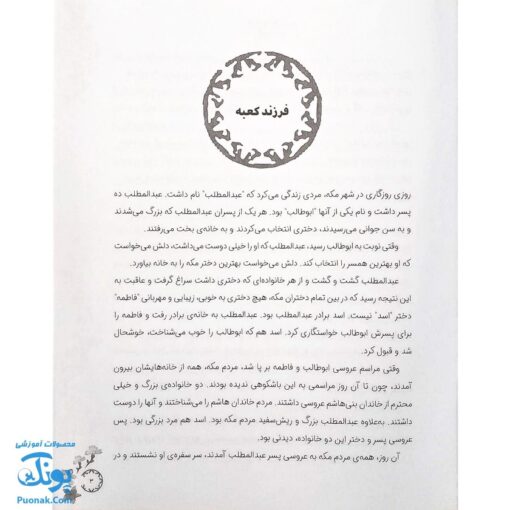 فرزند کعبه
روزی روزگاری در شهر مکه، مردی زندگی می‌کرد که "عبدالمطلب" نام داشت. عبدالمطلب ده
پسر داشت و نام یکی از آنها "ابوطالب" بود. هر یک از پسران عبدالمطلب که بزرگ می‌شدند
و به سن جوانی می‌رسیدند، دختری انتخاب می‌کردند و به خانه‌ی بخت می‌رفتند.
وقتی نوبت به ابوطالب رسید، عبدالمطلب که او را خیلی دوست می‌داشت، دلش می‌خواست
که او بهترین همسر را انتخاب کند. دلش می‌خواست بهترین دختر مکه را به خانه بیاورد.
عبدالمطلب گشت و گشت و از هر خانواده‌ای که دختری داشت سراغ گرفت و عاقبت به
این نتیجه رسید که در بین تمام دختران مکه، هیچ دختری به خوبی، زیبایی و مهربانی "فاطمه"
دختر "اسد" نیست. اسد برادر عبدالمطلب بود. عبدالمطلب به خانه‌ی برادر رفت و فاطمه را
برای پسرش ابوطالب خواستگاری کرد. اسد هم که ابوطالب را خوب می‌شناخت، خوشحال
شد و قبول کرد.
وقتی مراسم عروسی ابوطالب و فاطمه بر پا شد، مردم مکه، همه از خانه‌هایشان بیرون
آمدند، چون تا آن روز مراسمی به این باشکوهی ندیده بودند. دو خانواده‌ی بزرگ و خیلی
محترم از خاندان بنی‌هاشم عروسی داشتند. مردم خاندان هاشم را می‌شناختند و آنها را دوست
داشتند. به‌علاوه عبدالمطلب بزرگ و ریش‌سفید مردم مکه بود. اسد هم مرد بزرگی بود. پس
عروسی پسر و دختر این دو خانواده، دیدنی بود.
آن روز، همه‌ی مردم مکه به عروسی پسر عبدالمطلب آمدند، سر سفره‌ی او نشستند و در
محصولات آموزشی
پونک
Puonak.Com